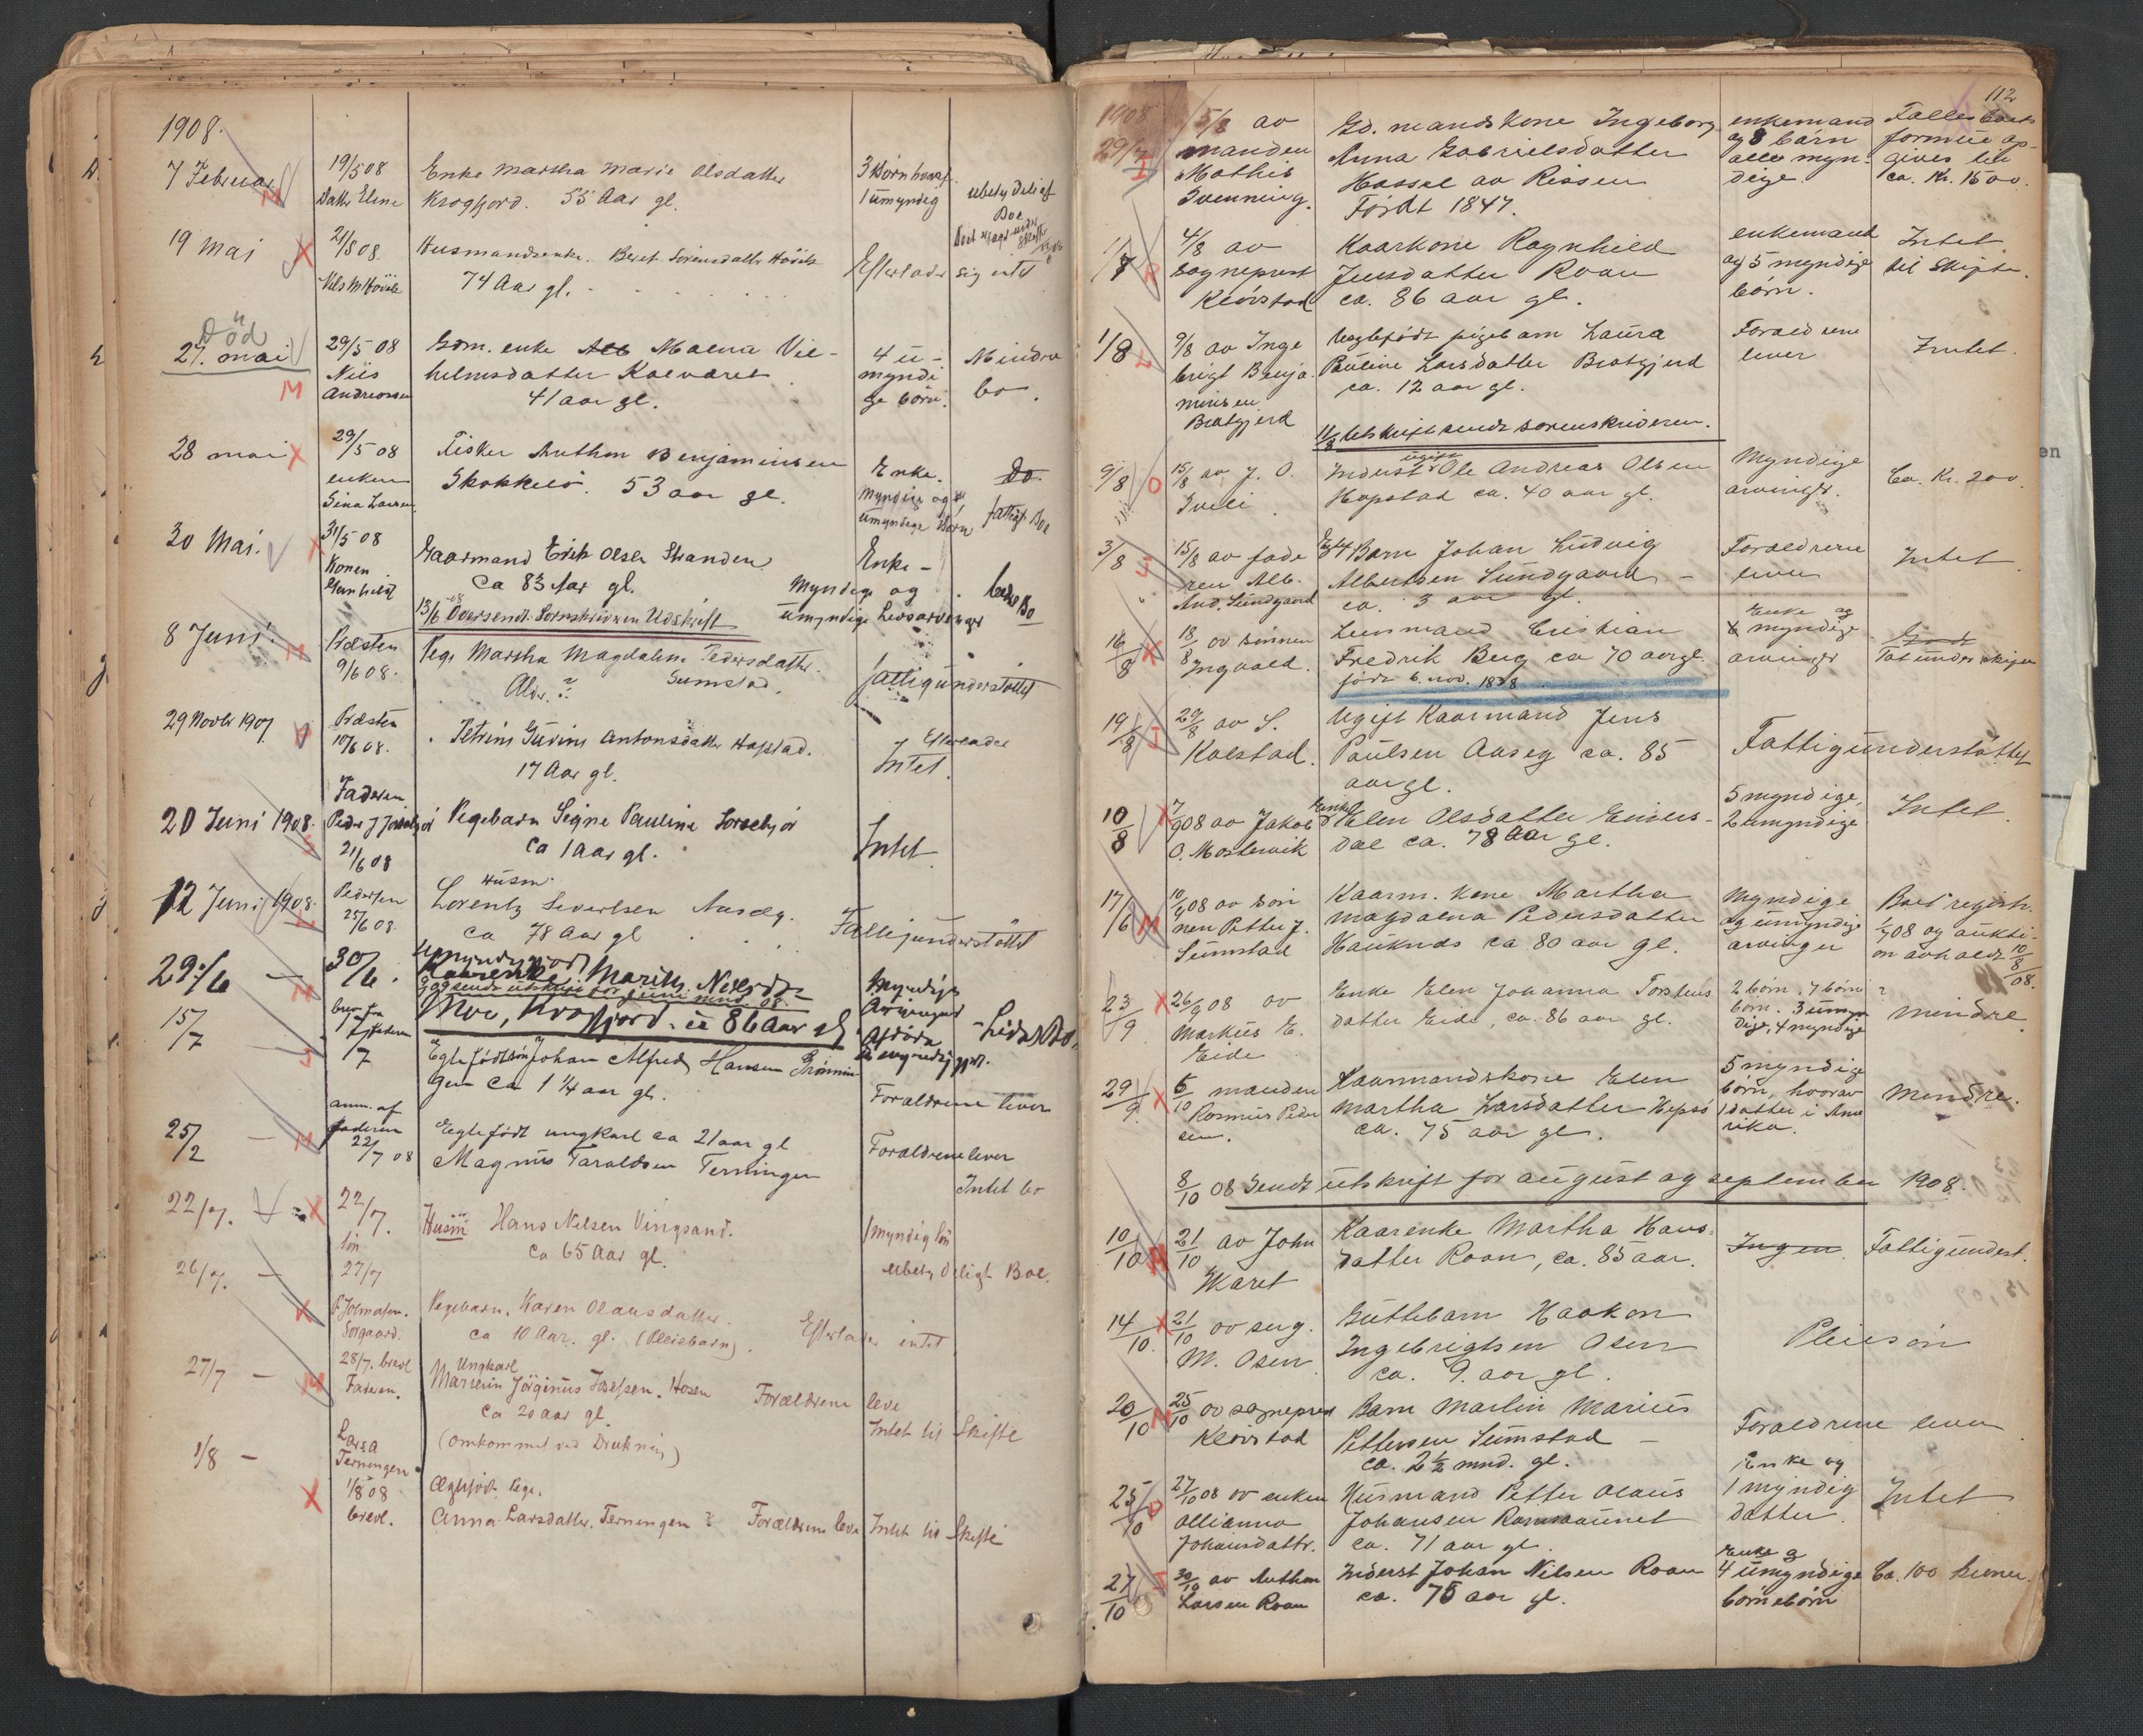 1908.
7 Februar
19/5 08
Datter Eline
Enke Martha Marie Olsdatter
Krogfjord. 55 Aar gl.
3 Børn hvoraf
1 umyndig
ubetydeligt
Boe
19 Mai
21/5 08.
Nils M Hövik
Husmandsenke. Beret Sørensdatter
74 Aar gl.
Efterlader sig intet
Död
27. mai
29/5 08
Nils
Andreassen
Gdm. enke Malena Vil-
helmsdatter Kalvaret
41 aar gl.
4 u-
myndi
ge börn.
Mindre
bo.
28 mai
29/5 08
enken
Sina Larsen
Fisker Anthon Benjaminsen
Skokkelö. 53 aar gl.
Enke.
myndige og
umyndige Børn
Do.
fattigt Boe
30 Mai.
31/5 08
Konen
Gunhild
Gaarmand Erik Olsen Stranden
Ca 83 Aar gl.
Enke -
Myndige og
umyndige Livsarvinger
lidet Bo
13/6 08 Oversendt Sornskriveren Udskrift
8 Juni.
Præsten
9/6 08.
Pige Martha Magdalene Pedersdatter.
Sumstad.
Alder ?
fattigunderstøttet
29 Novbr 1907
Præsten
10/6 08.
Petrine Gurine Antonsdatter Hopstad.
17 Aar gl.
Efterlader
Intet.
20 Juni 1908.
Faderen
Peder J
21/6 08
Pigebarn Signe Pauline
Ca 1 Aar gl.
Intet
12 Juni 1908.
Pedersen
25/6 08.
Husm.
Lorentz Sivertsen Aaseg.
Ca 78 Aar gl
Fattigunderstøttet
29/6 -
30/6.
Kaarenke Marith Nilsdtr
Moe, Krogfjord. ca 86 Aar gl
Myndige
Arvinger
Lidet Bo
15/7
brev fra
faderen
17/7
Egtefødt søn Johan Alfred Hansen Grønnin-
gen ca 1 1/4 aar gl.
Foraldrene lever
25/2 -
anm. af
faderen
22/7 08
Egtefødt ungkarl ca 21 aar gl
Magnus Taraldsen Terningen
Foraldrene lever
Intet bo
22/7.
22/7.
sön
Husm Hans Nilsen Vingsand.
Ca 65 Aar gl.
1 myndig sön
ubetydeligt Boe.
26/7. -
27/7
Sørgaard.
Pigebarn. Karen Olausdatter.
ca 10 Aar. gl. (Pleiebarn).
Efterlader intet
27/7 -
28/7. brevl
Faderen.
Ungkarl
Marselin Jörginus Josefsen. Hosen
Ca 20 aar gl.
(omkommet ved Drukning)
Forældrene leve
Intet til Skifte
1/8 -
Lars A
Terningen
1/8 08
brevl.
Ægtefødt Pige.
Anna Larsdatter. Terningen ?
Forældrene leve Intet til Skifte
112
1908
29/7
5/8 av
manden
Mathis
Svenning.
Gd. mandskone Ingeborg
Anna Gabrielsdatter
Hassel av Rissen
Födt 1847.
enkemand
og 8 börn
alle myn-
dige.
Falles boets
formue op-
gives til
ca. Kr. 1500.
1/8
4/8 av
sogneprest
Klövstad
Kaarkone Ragnhild
Jensdatter Roan
ca. 86 aar gl.
enkemand
og 5 myndige
börn.
Intet
til Skifte.
1/8
9/8 av Inge
brigt Benja-
minsen
Bratgjerd
Uegtefödt pigebarn Laura
Pauline Larsdatter Bratgjerd
ca. 12 aar gl.
Foraldrene
lever
Intet.
11/8 Utskrift sendt sorenskriveren.
9/8
15/8 av J. O.
Sveli
ugift
Inderst Ole Andreas Olsen
Hopstad ca. 40 aar gl.
Myndige
arvinger.
Ca. Kr. 200.
3/8
15/8 av fade
ren Alb.
And. Sundgaard
Barn Johan Ludvig
Albertsen Sundgaard -
ca. 3 aar gl.
Foraeldrene
lever
Intet.
16/8
18/8 av sönnen
Ingvald.
Lensmand Cristian
Fredrik Berg ca 70 aar gl.
födt 6. nov. 1838
Enke og
6 myndige
arvinger
Tat under skifte
19/8
29/8 av S.
Kolstad.
Ugift Kaarmand Jens
Paulsen Aaseg ca. 85
aar gl.
Fattigunderstöttet
10/8
7/9 08 av Jakob
O. Mostervik
Enke
Elen Olsdatter Einers-
dal ca. 78 aar gl.
5 myndige,
2 umyndige
Intet.
17/6
10/9 08 av sön
nen Petter J.
Sumstad
Kaarm. kone Martha
Magdalena Pedersdatter
Hauknes ca 80 aar gl.
Myndige
og umyndige
arvinger
Boet registr.
1/7 08 og aukti-
on avholdt 10/8
08.
23/9
26/9 08 av
Markus E.
Eide
Enke Elen Johanna Torstens
datter Eide, ca. 86 aar gl.
2 börn. 7 börne
börn. 3 umyn
dige, 4 myndige
mindre.
29/9
5/10 manden
Rasmus Peder
sen.
Kaarmandskone Elen
Martha Larsdatter Hepsö
ca. 75 aar gl.
5 myndige
börn, hvorav
1 datter i Ame
rika.
Mindre.
8/10 08 Sendt utskrift for august og september 1908.
10/10
21/10 av John
Skaret
Kaarenke Martha Hans-
datter Roan, ca. 85 aar.
Ingen.
Fattigunderst.
14/10.
21/10 av serg.
M. Osen
Guttebarn Haakon
Ingebrigtsen Osen
ca. 9. aar gl.
Pleiesön
20/10
25/10 av sogneprest
Klövstad
Barn Martin Marius
Pettersen Sumstad -
ca. 2 1/2 mnd. gl.
Foraldrene lever
25/10
27/10 08 av enken
Ollianna
Johansdattr.
Husmand Petter Olaus
Johansen Ramsaunet
ca. 71 aar gl.
Enke og
1 myndig
datter.
Intet
27/10
30/10 av Anthon
Larsen Roan
Inderst Johan Nilsen Roan
ca. 75 aar gl.
Enke og
4 umyndige
börnebörn
Ca. 100 kroner.